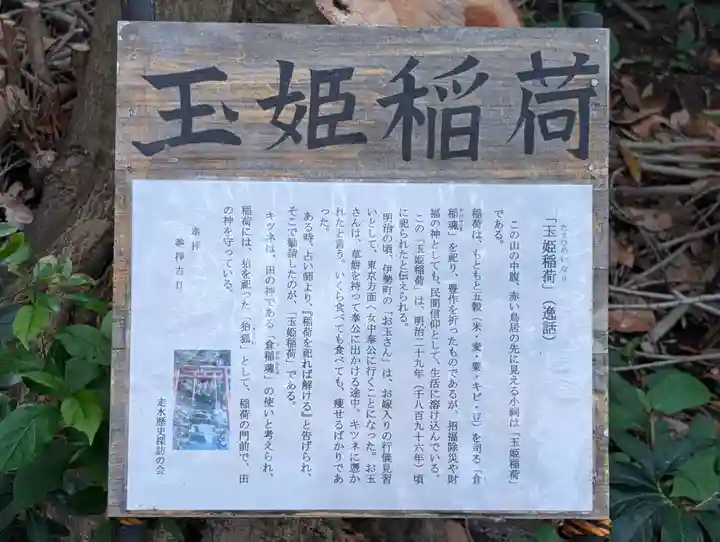 玉姫稲荷
「玉姫稲荷」(逸話)
たまひめいなり
この山の中腹、赤い鳥居の先に見える小祠は「玉姫稲荷」
である。
稲荷は、もともと五穀(米・麦・粟・キビ・豆)を司る「倉
稲魂」を祀り、豊作を祈ったものであるが、招福除災や財
福の神としても、民間信仰として、生活に溶け込んでいる。
この「玉姫稲荷」は、明治二十九年(千八百九十六年)頃
に祀られたと伝えられる。
明治の頃、伊勢町の「お玉さん」は、お嫁入りの行儀見習
いとして、東京方面へ女中奉公に行くことになった。お玉
さんは、草餅を持って奉公に出かける途中、キツネに憑か
れたと言う。いくら食べても食べても、痩せるばかりであ
った。
ある時、占い師より、『稲荷を祀れば解ける』と告げられ、
そこで勧請したのが、「玉姫稲荷」である。
キツネは、田の神である「倉稲魂」の使いと考えられ、
稲荷には、狛を祀った「狛狐」として、稲荷の門前で、田
の神を守っている。
奉拝
参拝吉日
走水歴史探訪の会